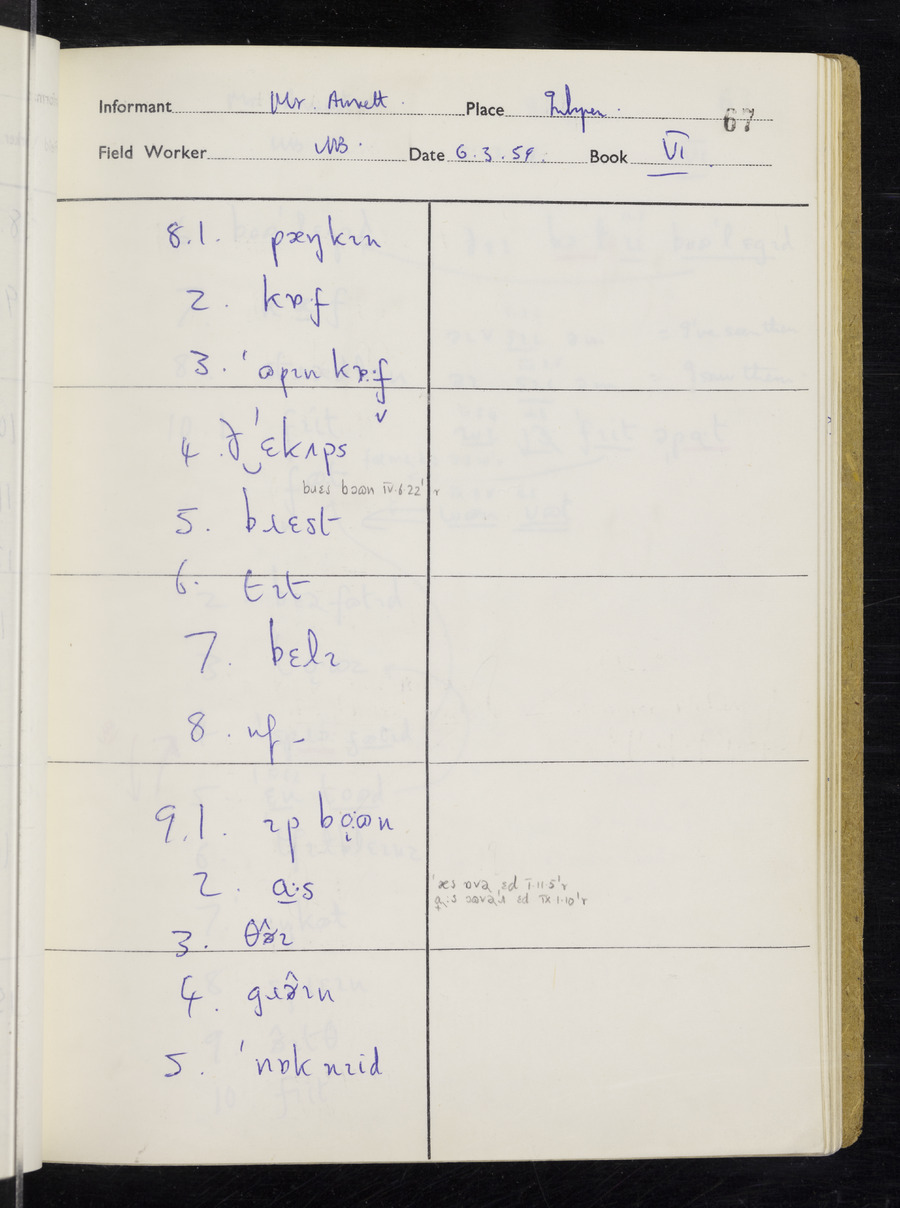 Informant Mr. Annett. Place Inkpen. 67
Field Worker MB. Date 6.3.59. Book VI
8.1. pæŋkɪn
2. kɒːf
3. ˈopɪn kɒːf
4. ðˈɛkʌps
bɹɛs bɔʊn IV.6.22'r
5. bɹɛst
6. tɪt
7. bɛlɪ
8. nf –
9.1. ɪp bo̜ːʊn
2. a̠ːs
ˈæs ɒvə ˌɛd I.11.5'r
a̠ːs ɔʊvəˈɹ ɛd IX.1.10'r
3. θɤ̂ɪ
4. gɹɤ̂ɪn
5. ˈnɒk nɪid